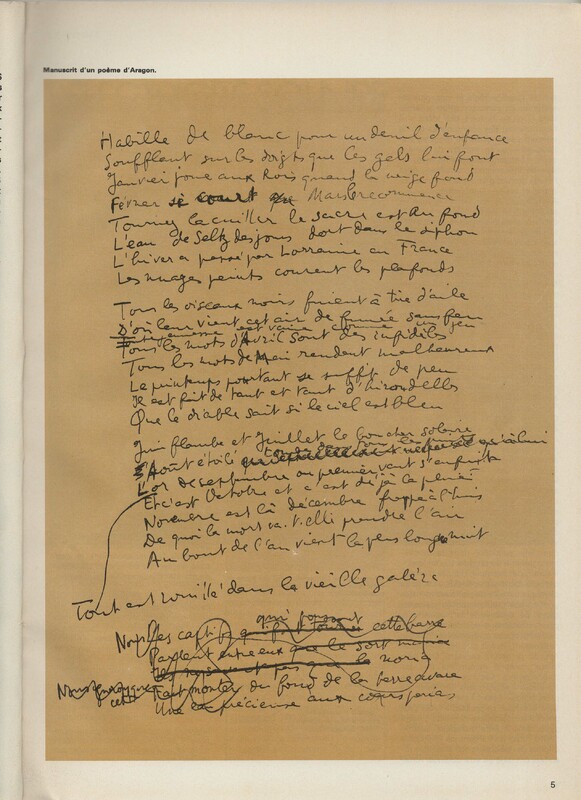 Manuscrit d'un poème d'Aragon.
Habillé de blanc pour un deuil d'enfance
Soufflant sur les doigts que les gels lui font
Janvier joue aux Rois quand la neige fond
Février se court Mars recommence
Tournez la cuiller le sucre est au fond
L'eau de Seltz des jours dort dans le siphon
L'hiver a passé par Lorraine au France
Les nuages peints courent les plafonds
Tous les oiseaux noirs fuient à tire d'aile
D'où leur vient cet air de fumée sans feu
est vaine comme un jeu
Tous les mots d'Avril sont des infidèles
Tous les mots de Mai rendent malheureux
Le printemps pourtant se suffit de peu
Il est fait de tant et tant d'hirondelles
Que le diable sait si le ciel est bleu
Juin flambe et Juillet le boucher solaire
Août étoilé
L'or de septembre au premier vent s'enfuit
Et c'est Octobre et c'est déjà la pluie
Novembre est là décembre frappe à l'huis
De quoi la mort va-t-elle prendre l'air
Au bout de l'an vient la plus longue nuit
Tout est rouillé dans la vieille galère
les captifs qui cette barre
Parlent entre eux que le sort
que la noria
Fait monter du fond de la terre avare
Une précieuse aux
5